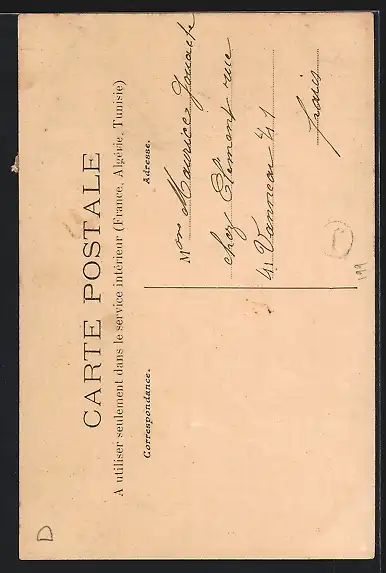 CARTE POSTALE
A utiliser seulement dans le service intérieur (France, Algérie, Tunisie)
Correspondance.
Adresse.
Mon Maurice
chez Clement rue
41 Vanneau 41
Paris
199
D